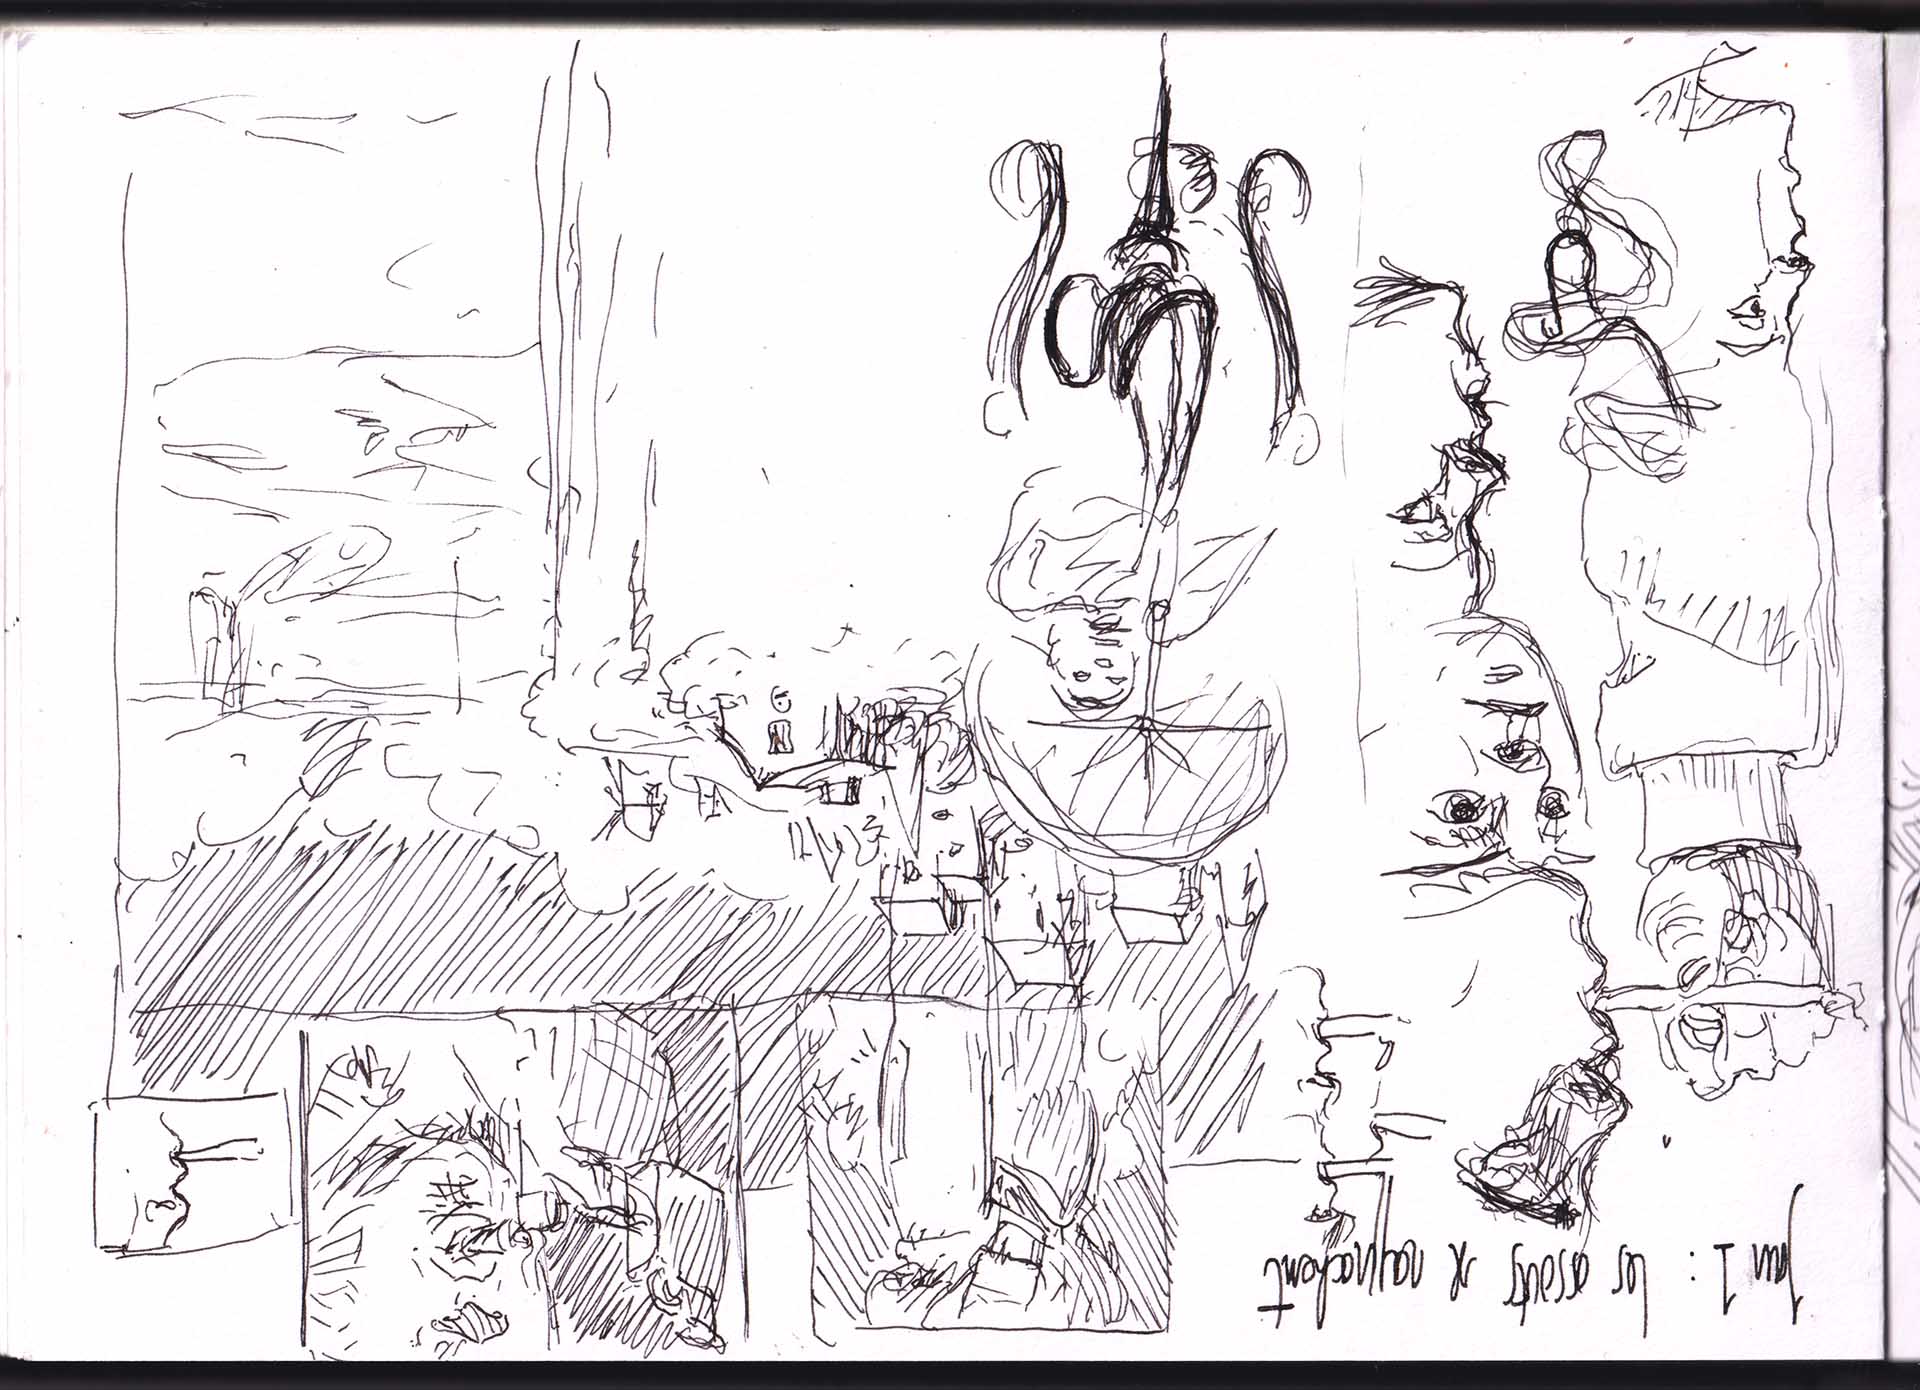 Jour 1 : les assauts se rapprochent